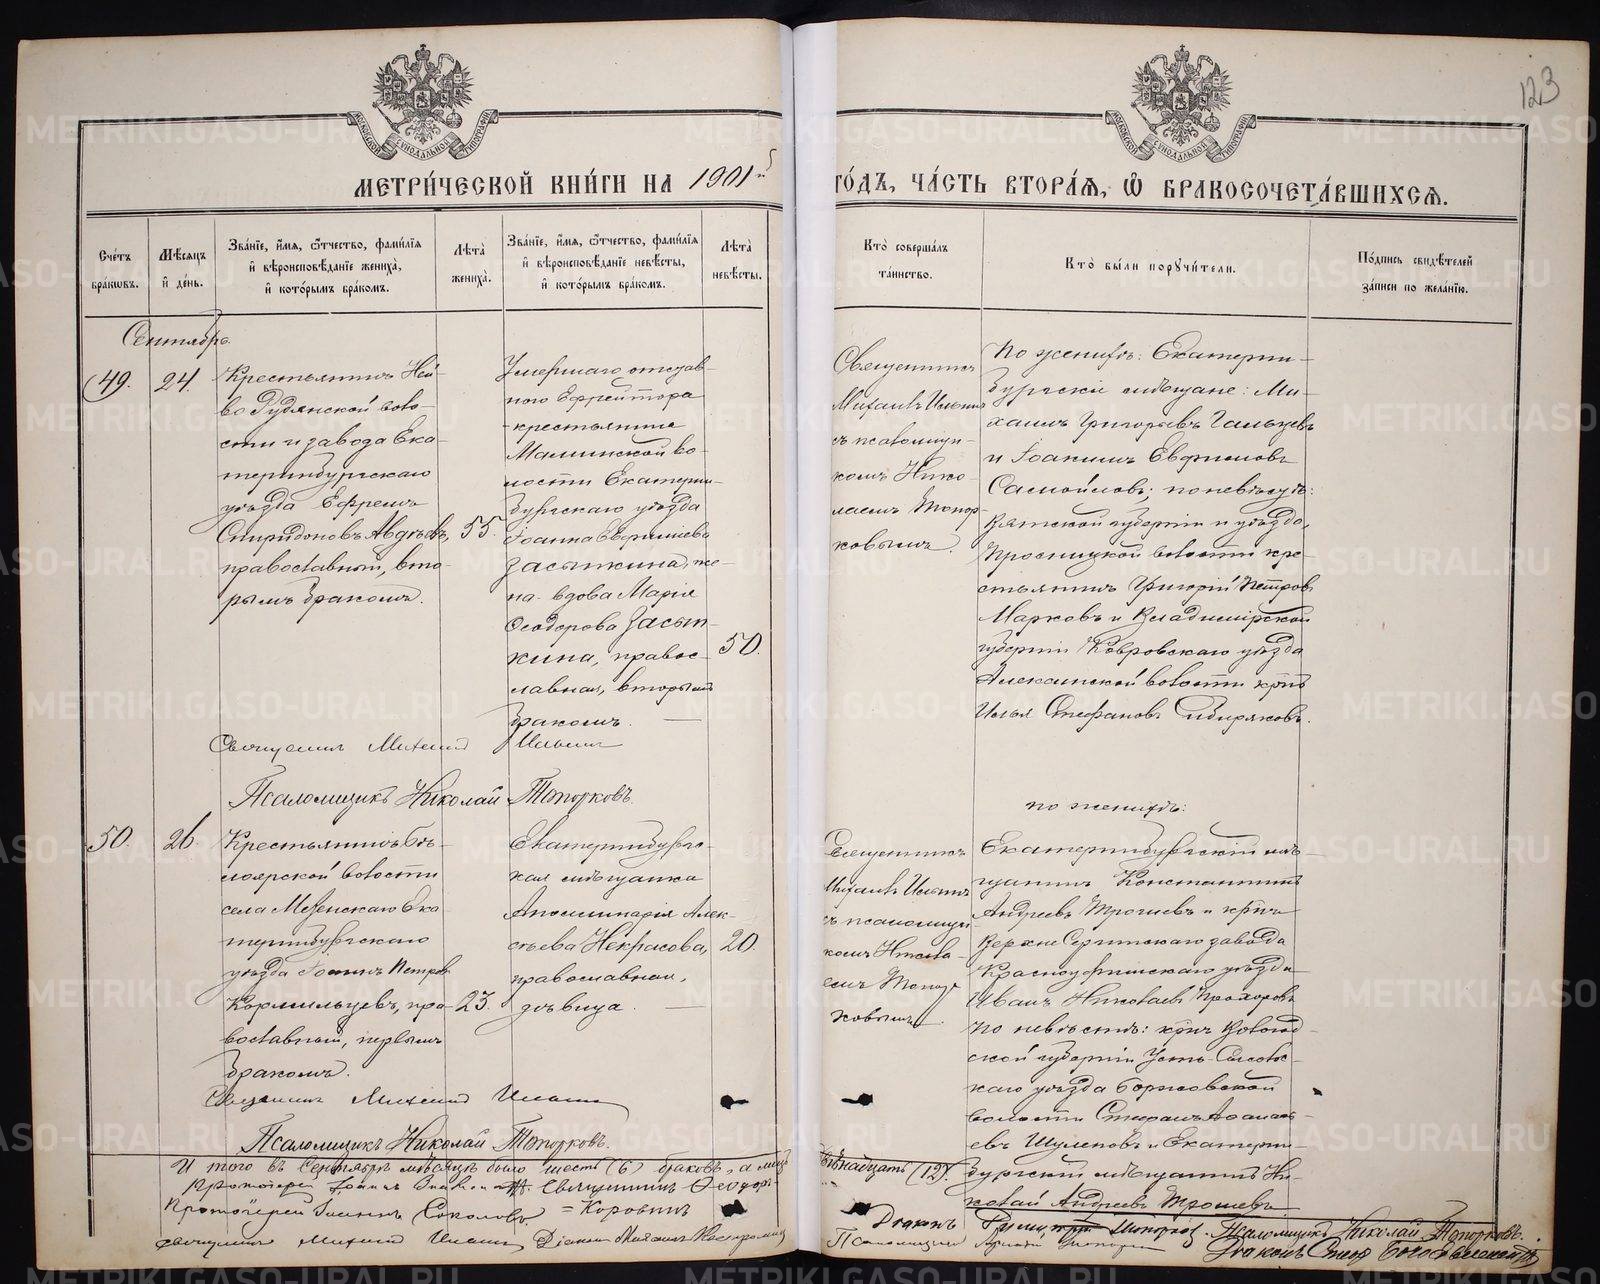 123
МЕТРИ́ЧЕСКОЙ КНИ́ГИ НА 1901й ГО́ДЪ, ЧА́СТЬ ВТОРА́Я, Ѿ БРАКОСОЧЕТА́ВШИХСЯ.
Сче́тъ бра́кωвъ.
Мѣ́сяцъ и҆ де́нь.
Зва́нїе, и҆́мя, ѻ҆́тчество, фами́лїя
и҆ вѣроисповѣ́данїе жениха̀,
и҆ кото́рымъ бра́комъ.
Лѣ́та̀ жениха̀.
Зва́нїе, и҆́мя, ѻ҆́тчество, фами́лїя
и҆ вѣроисповѣ́данїе невѣ́сты,
и҆ кото́рымъ бра́комъ.
Лѣ́та̀ невѣ́сты.
Кто̀ соверша́лъ
та́инство.
Кто̀ бы́ли порꙋчи́тели.
По́дпись свидѣ́телей
за́писи по жела́нїю.
Сентябрь
49.
24.
Крестьянинъ Ней-
во Рудянской воло-
сти и завода Ека-
теринбургскаго
уѣзда Ефремъ
Спиридоновъ Авдѣевъ,
православный, вто-
рымъ бракомъ.
55.
Умершаго отстав-
ного Ефрейтора
крестьянина
Маминской во-
лости Екатерин-
бургскаго уѣзда
Іоанна Евфиміева
Засыпкина, же-
на-вдова Марія
Ѳеодорова Засып-
кина, правос-
лавная, вторымъ
бракомъ.
50.
Священникъ
Михаилъ Ильинъ
съ псаломщи-
комъ Нико-
лаемъ Топор-
ковымъ.
По женихѣ: Екатерин-
бургскіе мѣщане: Ми-
хаилъ Григорьевъ Гальцевъ
и Іоакимъ Евфимовъ
Самойловъ; по невѣстѣ:
Вятской губерніи и уѣзда,
Просницкой волости кре-
стьянинъ Григорій Петровъ
Марковъ и Владимірской
губерніи Ковровскаго уѣзда
Алексинской волости кр-нъ
Илья Стефановъ Сибиряковъ.
Священникъ Михаилъ Ильинъ
Псаломщикъ Николай Топорковъ.
50.
26.
Крестьянинъ Бѣ-
лоярской волости
села Мезенскаго Ека-
теринбургскаго
уѣзда Іоаннъ Петровъ
Кормильцевъ, пра-
вославный, первымъ
бракомъ.
23.
Екатеринбургс-
кая мѣщанка
Аполлинарія Алек-
сѣева Некрасова,
православная,
дѣвица.
20.
Священникъ
Михаилъ Ильинъ
съ псаломщи-
комъ Никола-
емъ Топор-
ковымъ.
по женихѣ:
Екатеринбургскій мѣ-
щанинъ Константинъ
Андреевъ Трошевъ и кр-нъ
Верхне Сергинскаго завода
Красноуфимскаго уѣзда
Иванъ Николаевъ Прохоровъ
по невѣстѣ: кр-нъ Вологод-
ской губерніи Усть-Сысольс-
каго уѣзда Борисовской
волости Стефанъ Афанась-
евъ Шуленовъ и Екатерин-
бургскій мѣщанинъ Ни-
колай Андреевъ Трошевъ.
Священникъ Михаилъ Ильинъ
Псаломщикъ Николай Топорковъ.
Итого въ Сентябрѣ мѣсяцѣ было шесть (6) браковъ, а лицъ двѣнадцать (12).
Священникъ Ѳеодоръ Коровинъ
Протоіерей Іоаннъ Соколовъ
Священникъ Михаилъ Ильинъ
Діаконъ Михаилъ Костромин
Діаконъ
Псаломщикъ
Псаломщикъ Николай Топорковъ.
Діаконъ Стеф. Богоявленскій